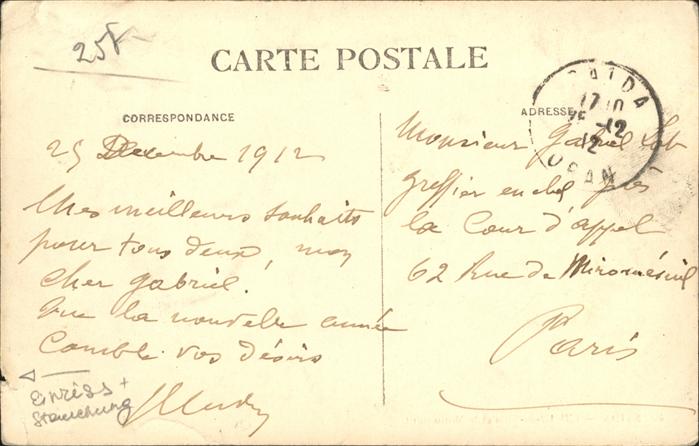 25
CARTE POSTALE
CORRESPONDANCE
ADRESSE
SAIDA
17 10
25 -12
12
ORAN
25 Décembre 1912
Mes meilleurs souhaits
pour tous deux, mon
cher Gabriel.
Que la nouvelle année
Comble vos désirs
Monsieur Gabriel
greffier en chef près
la Cour d'appel
62 Rue de Miromésnil
Paris
Einriss +
Stauchung